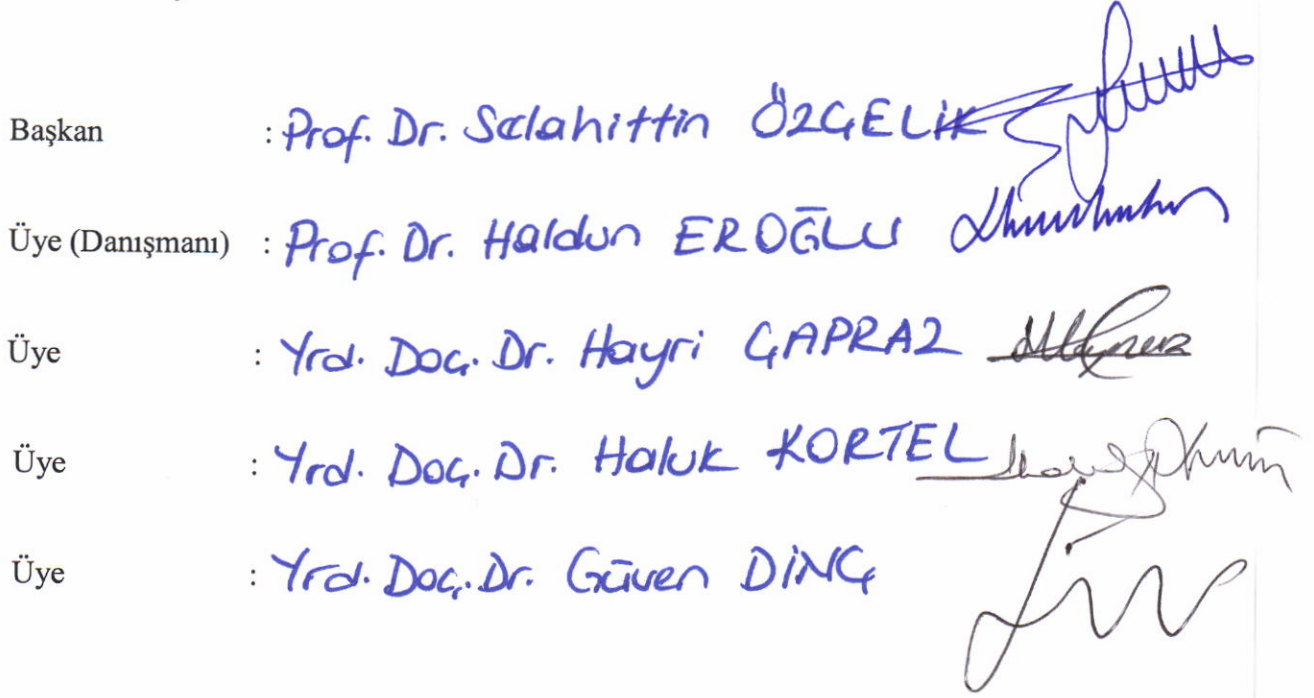 Başkan : Prof. Dr. Selahittin ÖZÇELİK
Üye (Danışmanı) : Prof. Dr. Haldun EROĞLU
Üye : Yrd. Doç. Dr. Hayri ÇAPRAZ
Üye : Yrd. Doç. Dr. Haluk KORTEL
Üye : Yrd. Doç. Dr. Güven DİNÇ